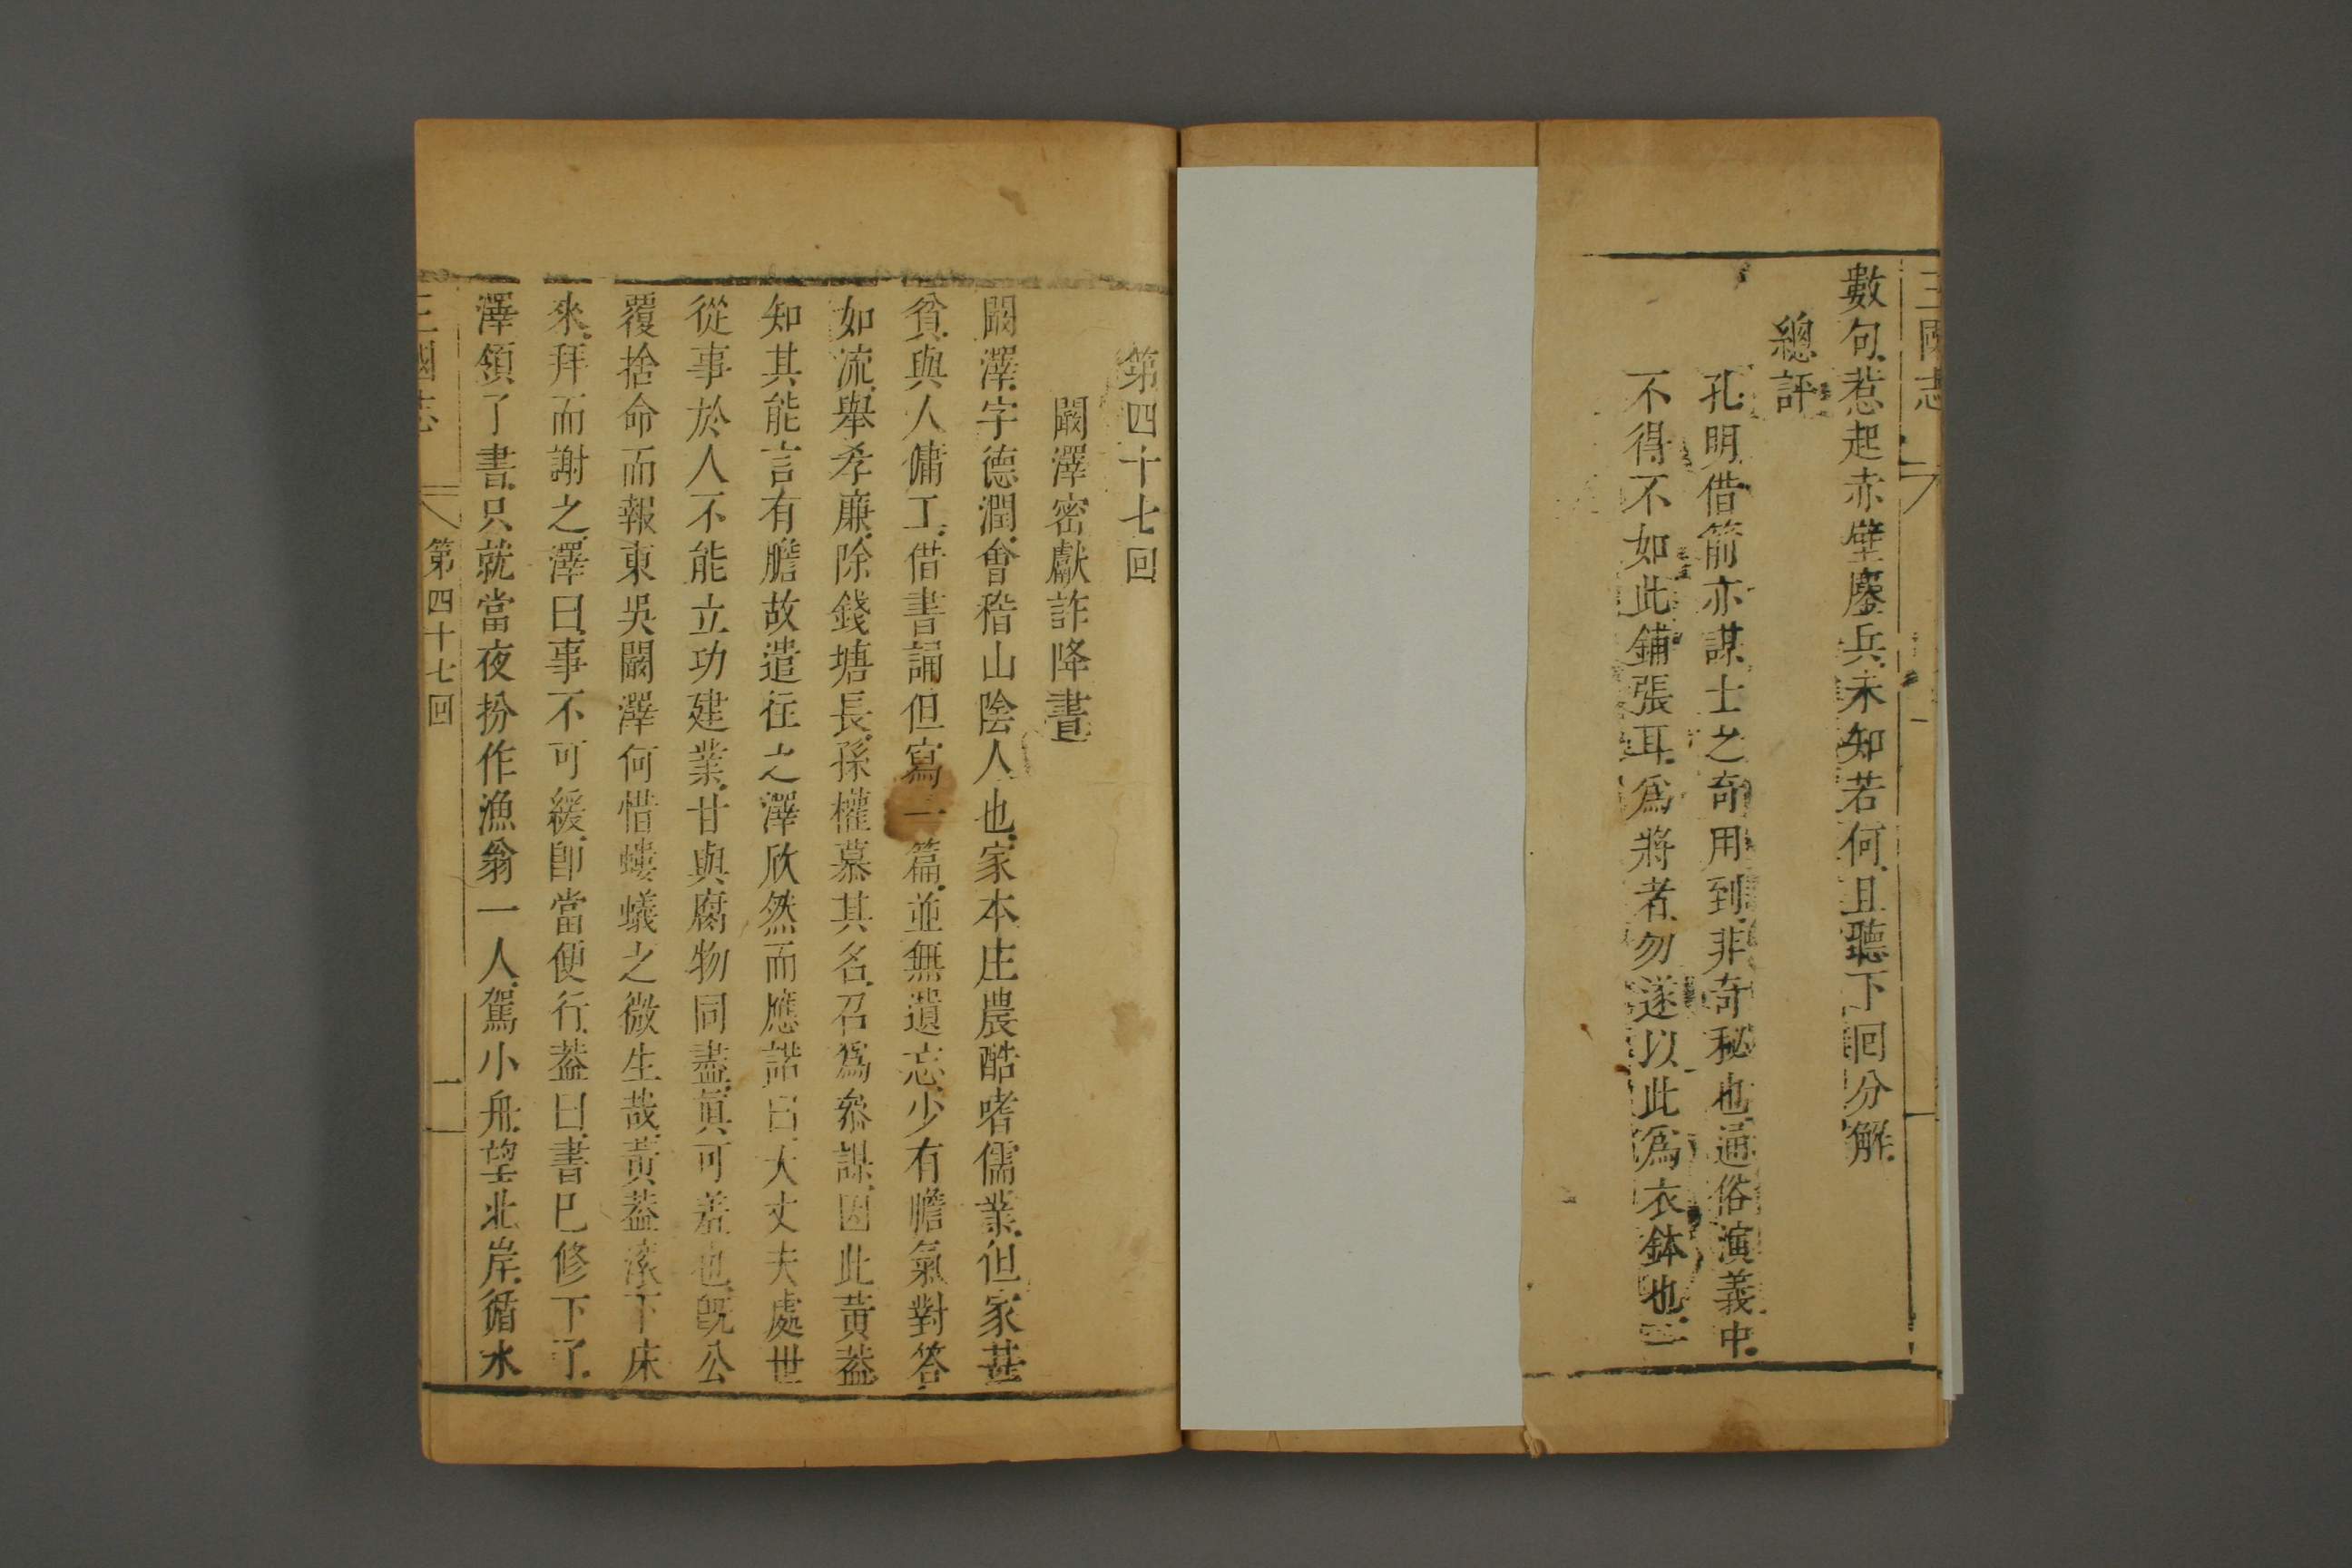 三國志
數句惹起赤壁鏖兵未知若何且聽下回分解
總評
孔明借箭亦謀士之奇用到非奇秘也通俗演義中
不得不如此鋪張耳爲將者勿遂以此爲衣鉢也
第四十七回
闞澤密獻詐降書
闞澤字德潤會稽山陰人也家本庄農酷嗜儒業但家甚
貧與人傭工借書誦但寫一篇並無遺忘少有膽氣對答
如流舉孝廉除錢塘長孫權慕其名召爲叅謀因此黃葢
知其能言有膽故遣往之澤欣然而應諾曰大丈夫處世
從事於人不能立功建業甘與腐物同盡眞可羞也旣公
覆捨命而報東吳闞澤何惜螻蟻之微生哉黃葢滚下床
來拜而謝之澤曰事不可緩卽當便行葢曰書已修下了
澤領了書只就當夜扮作漁翁一人駕小舟望北岸循水
三國志 第四十七回 一